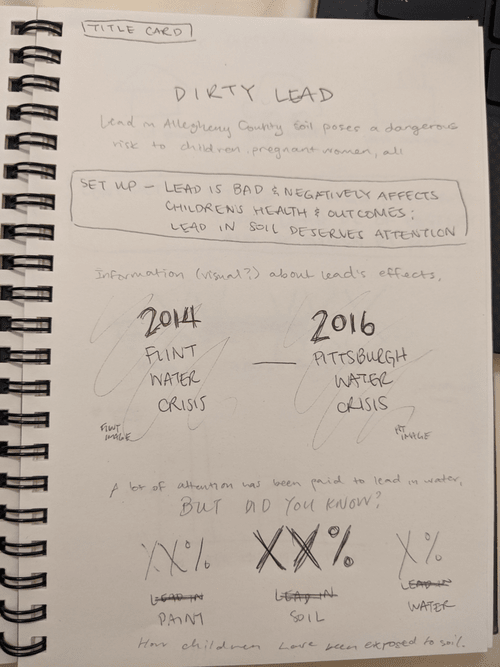 TITLE CARD
DIRTY LEAD
Lead in Allegheny County soil poses a dangerous
risk to children, pregnant women, all
SET UP – LEAD IS BAD & NEGATIVELY AFFECTS
CHILDREN'S HEALTH & OUTCOMES;
LEAD IN SOIL DESERVES ATTENTION
Information (visual?) about lead's effects.
2014 — 2016
FLINT PITTSBURGH
WATER WATER
CRISIS CRISIS
FLINT IMAGE
IMAGE
A lot of attention has been paid to lead in water,
BUT DID YOU KNOW?
XX% XX% X%
LEAD IN LEAD IN LEAD IN
PAINT SOIL WATER
How children have been exposed to soil.